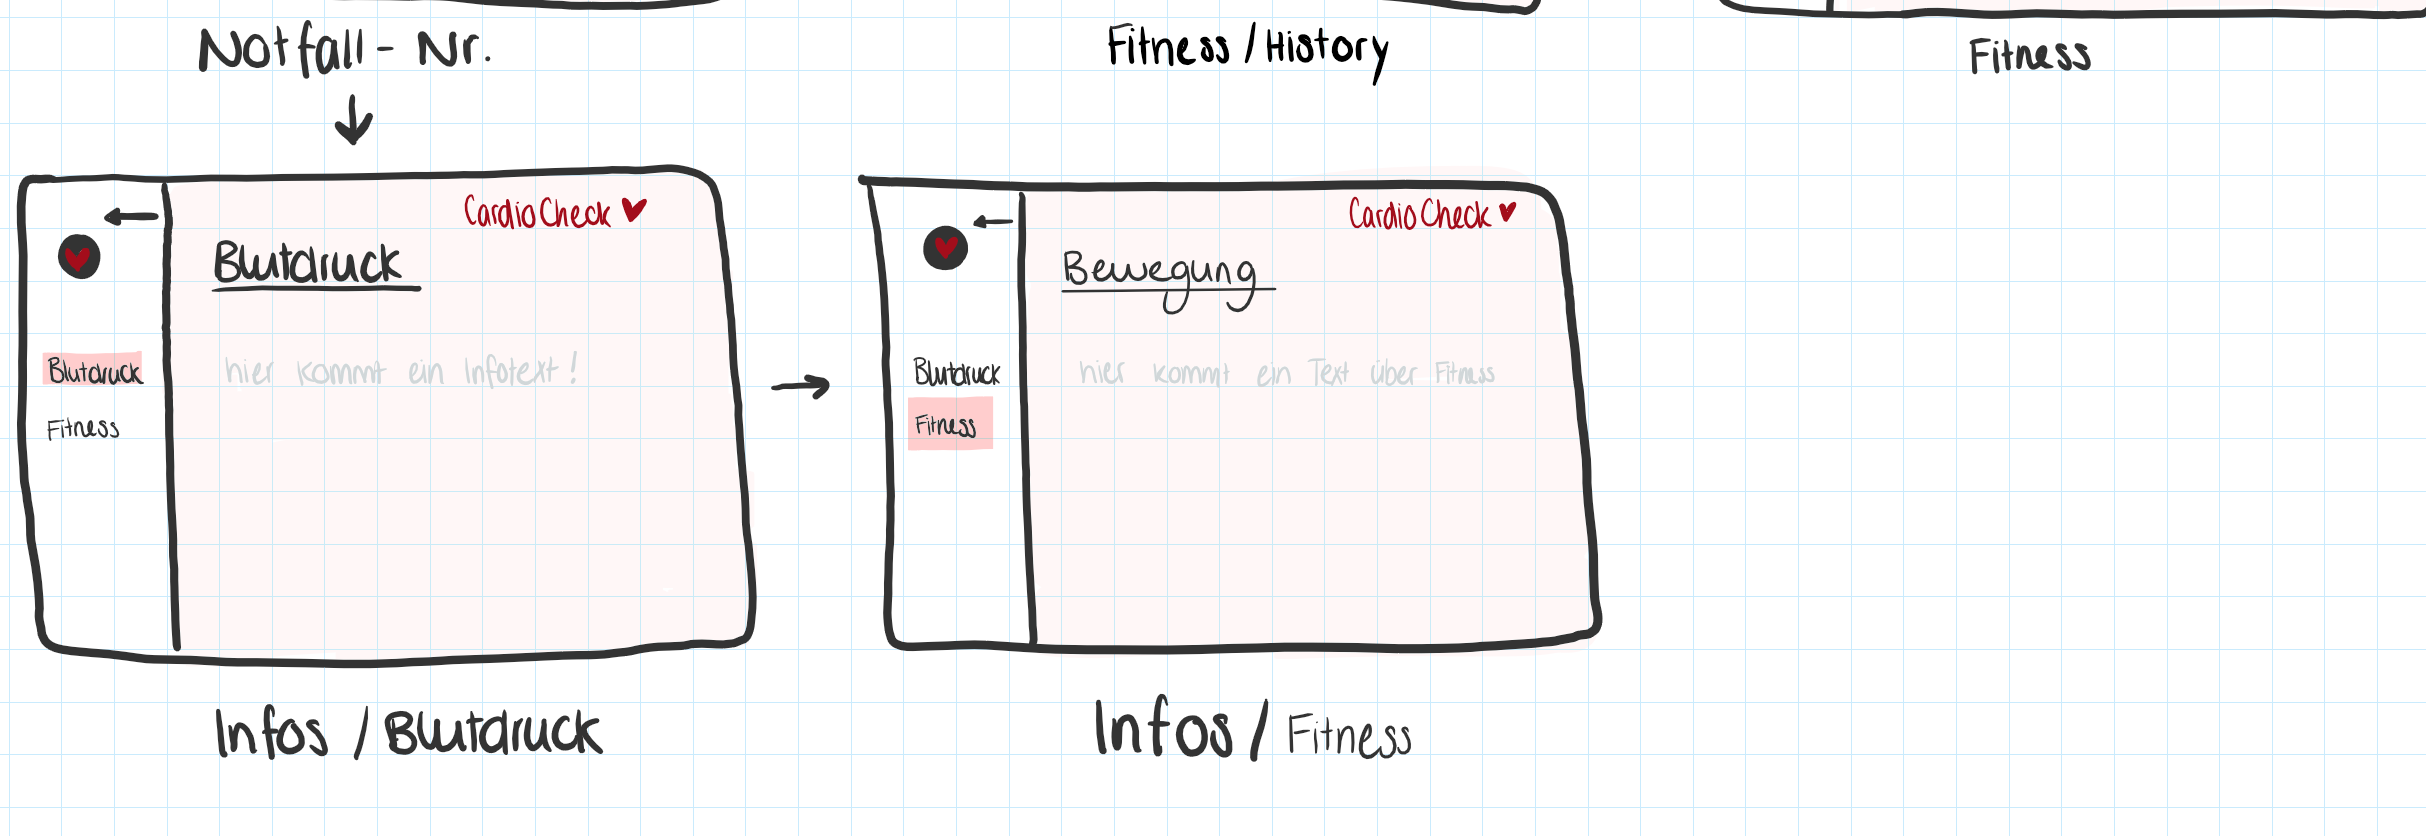 Notfall - Nr.
Fitness / History
Fitness
CardioCheck
Blutdruck
Blutdruck
hier kommt ein Infotext!
Fitness
Infos / Blutdruck
CardioCheck
Bewegung
Blutdruck
hier kommt ein Text über Fitness
Fitness
Infos / Fitness